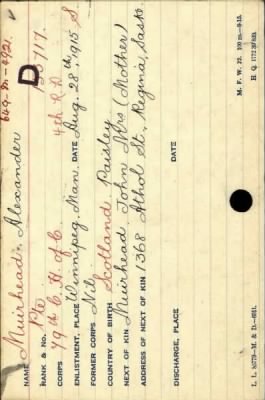 649-M-4921.
D
NAME Muirhead, Alexander
RANK & NO. Pte
CORPS 79th C. H. of C. 4th R.D.
ENLISTMENT, PLACE Winnipeg, Man. DATE Aug. 28th, 1915 S
FORMER CORPS Nil
COUNTRY OF BIRTH Scotland Paisley
NEXT OF KIN Muirhead, John Mrs (Mother)
ADDRESS OF NEXT OF KIN 1368 Athol St., Regina, Sask.
DISCHARGE, PLACE DATE
M. F. W. 22. 100 m.—9-15.
H. Q. 1772-39-893.